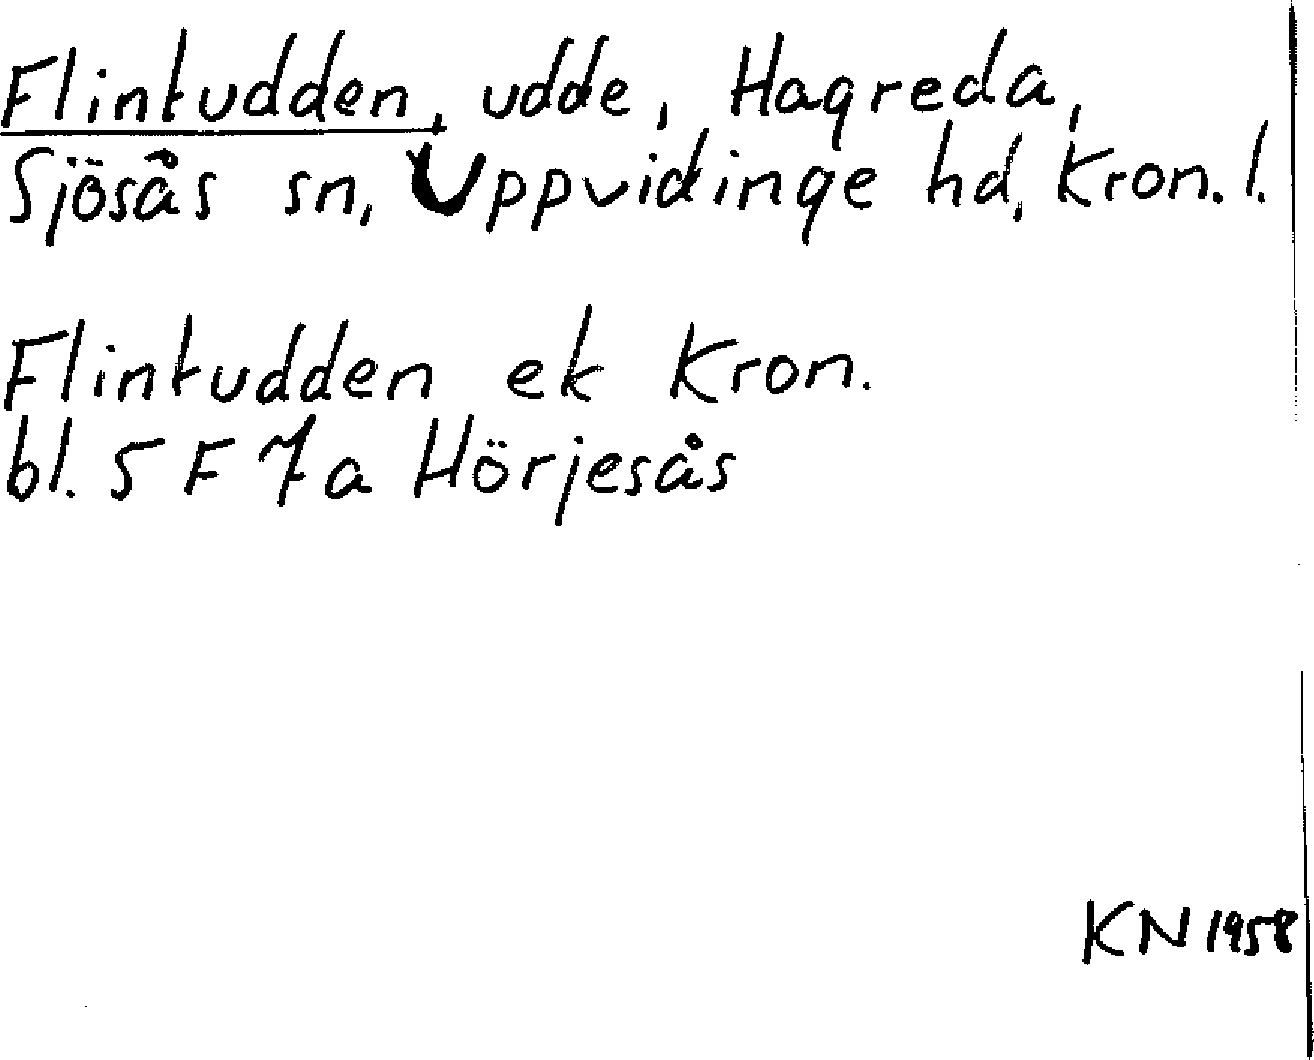 Flintudden, udde, Hagreda,
Sjösås sn, Uppvidinge hd, Kron. l.
Flintudden ek Kron.
bl. 5 F 7a Hörjesås
KN 1958